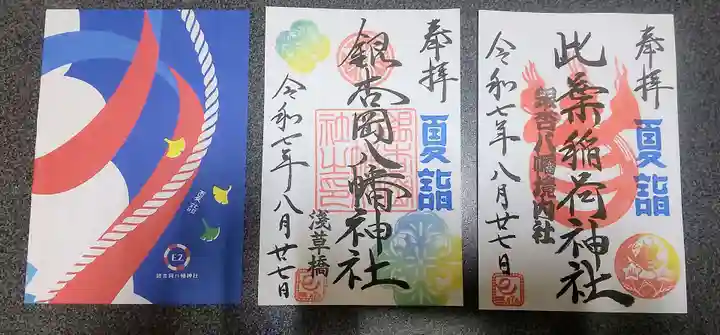 E2
銀杏岡八幡神社
奉拝
夏詣
銀杏岡八幡神社
浅草橋
令和七年八月廿七日
奉拝
夏詣
此葉稲荷神社
銀杏八幡境内社
令和七年八月廿七日